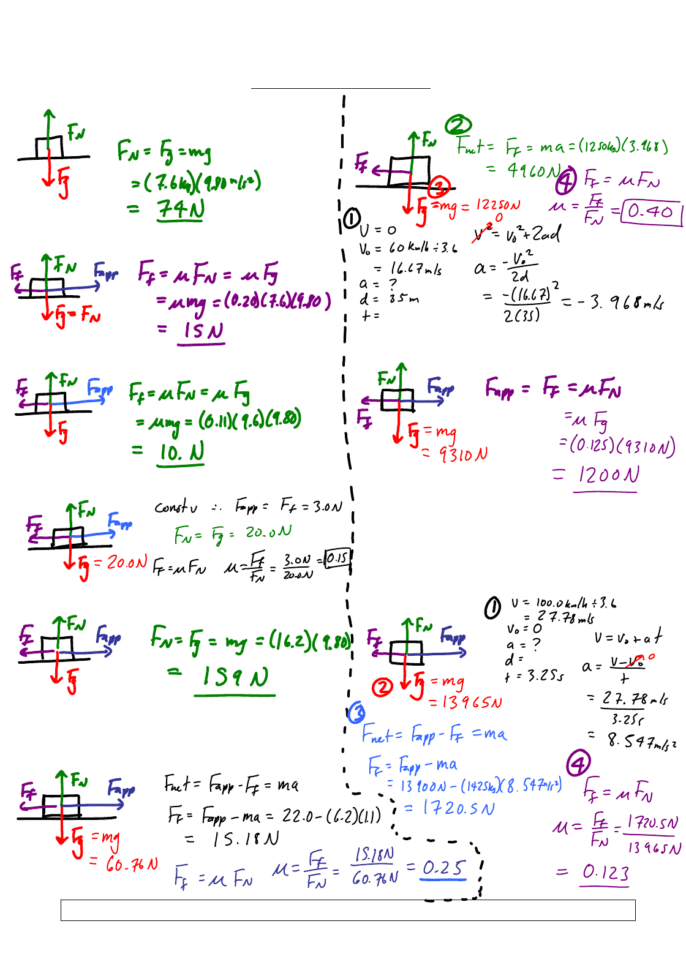 F_N
F_g
F_N = F_g = mg
= (7.6kg)(9.80 m/s²)
= 74N
F_f
F_N
F_app
F_g = F_N
F_f = μF_N = μF_g
= μmg = (0.20)(7.6)(9.80)
= 15N
F_f
F_N
F_app
F_g
F_f = μF_N = μF_g
= μmg = (0.11)(9.6)(9.80)
= 10. N
F_f
F_N
F_app
F_g = 20.0N
const v ∴ F_app = F_f = 3.0N
F_N = F_g = 20.0N
F_f = μF_N μ = F_f/F_N = 3.0N/20.0N = 0.15
F_f
F_N
F_app
F_g
F_N = F_g = mg = (16.2)(9.80)
= 159N
F_f
F_N
F_app
F_g = mg
= 60.76N
F_net = F_app - F_f = ma
F_f = F_app - ma = 22.0 - (6.2)(1.1)
= 15.18N
F_f = μF_N μ = F_f/F_N = 15.18N/60.76N = 0.25
F_f
F_N
③ F_g = mg = 12250N
② F_net = F_f = ma = (1250kg)(3.968)
= 4960N
④ F_f = μF_N
μ = F_f/F_N = 0.40
① V = 0
V₀ = 60 km/h ÷ 3.6
= 16.67m/s
a = ?
d = 35m
t =
v² 0 = v₀² + 2ad
a = -v₀²/2d
= -(16.67)²/2(35) = -3.968m/s
F_N
F_f
F_app
F_g = mg
= 9310N
F_app = F_f = μF_N
= μF_g
= (0.125)(9310N)
= 1200N
F_f
F_N
F_app
② F_g = mg
= 13965N
① v = 100.0 km/h ÷ 3.6
= 27.78m/s
v₀ = 0
a = ?
d =
t = 3.25s
v = v₀ + at
a = v - v₀ 0/t
= 27.78m/s/3.25s
= 8.547m/s²
③ F_net = F_app - F_f = ma
F_f = F_app - ma
= 13900N - (1425kg)(8.547m/s²)
= 1720.5N
④ F_f = μF_N
μ = F_f/F_N = 1720.5N/13965N
= 0.123